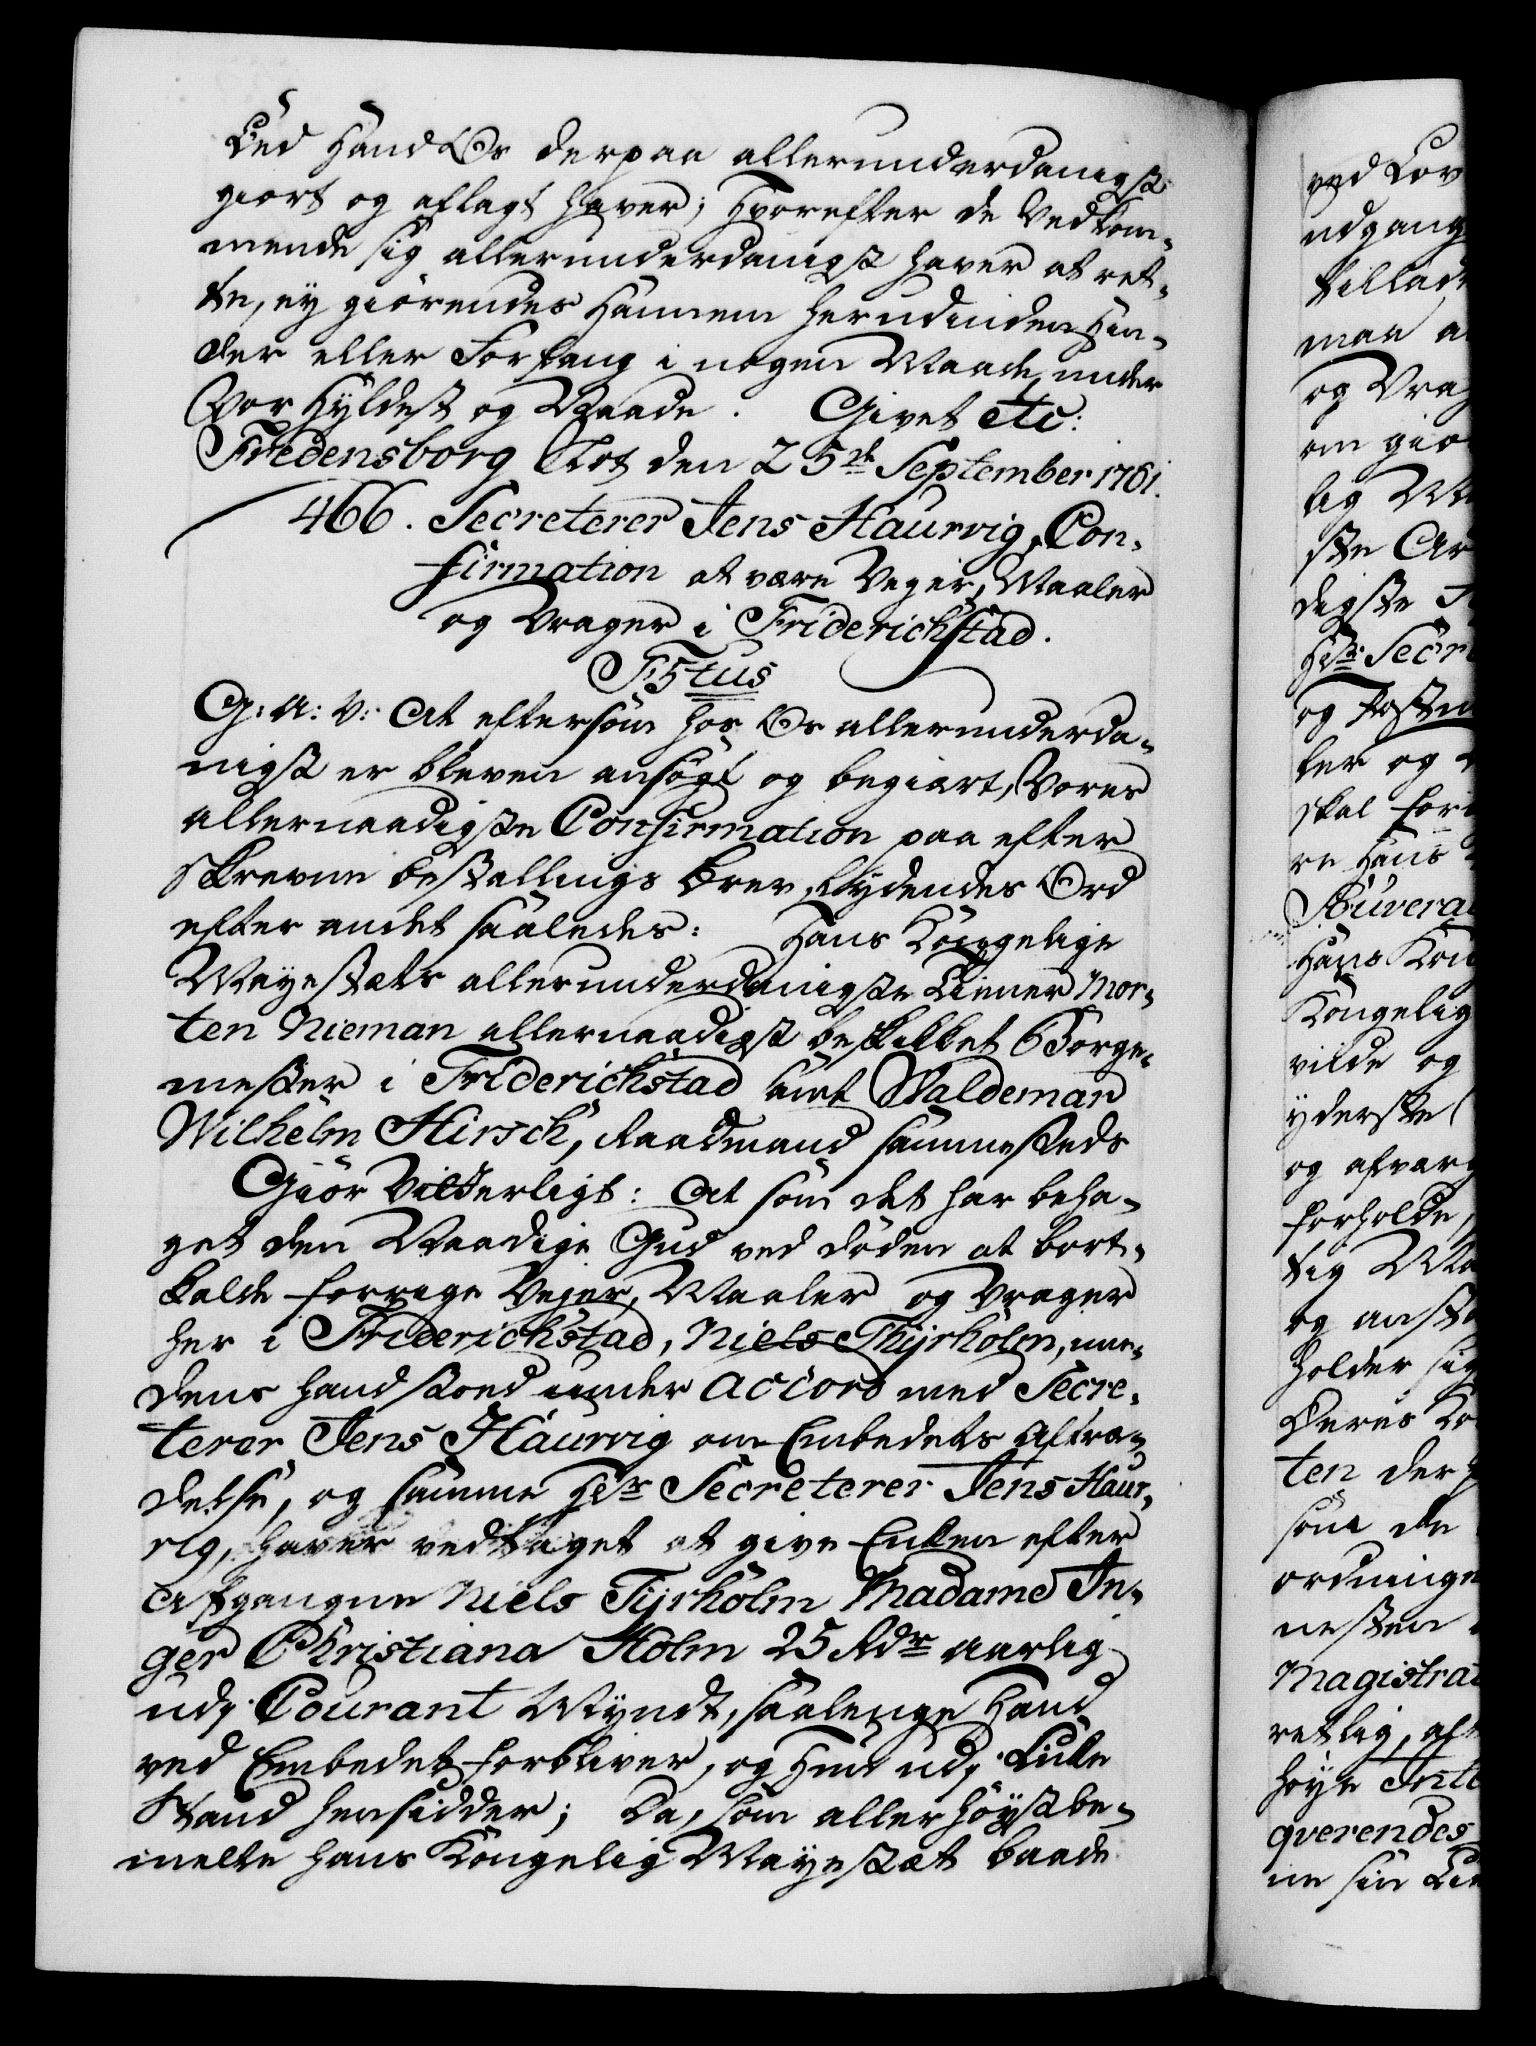 Eed Hand Os derpaa allerunderdanigst
giort og aflagt haver; Hvorefter de Vedkom-
mende sig allerunderdanigst haver at ret-
te, ey giörendes Hannem herudinden Hin-
der eller Forfang i nogen Maade, under
Vor Hyldest og Naade. Givet etc:
Fredensborg Slot den 25de September 1761.
466. Secreterer Jens Haurvig, Con-
firmation at være Vejer, Maaler
og Vrager i Friderichstad.
F5tus
G: A: V: At eftersom hos Os allerunderda-
nigst er bleven ansögt og begiært, Vores
allernaadigste Confirmation paa efter
skrevne bestallings Brev, lydendes Ord
efter andet saaledes: Hans Kongelige
Mayestæts allerunderdanigste Tiener Mor-
ten Nieman allernaadigst beskikket Borge-
mester i Friderichstad samt Waldemar
Wilhelm Hirsch, Raadmand sammesteds
Giör Vitterligt: At som det har beha-
get den Naadige Gud ved döden at bort-
kalde forrige Vejer, Maaler og Vrager
her i Friderichstad, Niels Thijrholm, me-
dens hand stoed under Accord med Secre-
terer Jens Haurvig om Embedets Aftræ-
delse, og samme Hr Secreterer Jens Haur-
vig, haver vedtaget at give Enken efter
Afgangne Niels Tijrholm Madame In-
ger Christiana Holm 25 Rdr aarlig
udj Courant Myndt, saalenge Hand
ved Embedet forbliver, og Hun udj Enke
Stand hensidder; Da, som allerhöystbe-
melte hans Kongelig Mayestæt baade
ved Lov
udgang
tillad
maa a
og Vrag
om giö
lig M
ste Ar
digste
Hr Secr
og
ler og
skal for
re Hans
Souverai
Hans Kon
Kongelig
vilde og
yderste
og afværg
forholde,
lig Ma
og anst
holder sig
Deres Ko
ten der
som de
ordninge
nesten
Magistrat
retlig, aft
höye Inte
qverendes
ne sin Ed